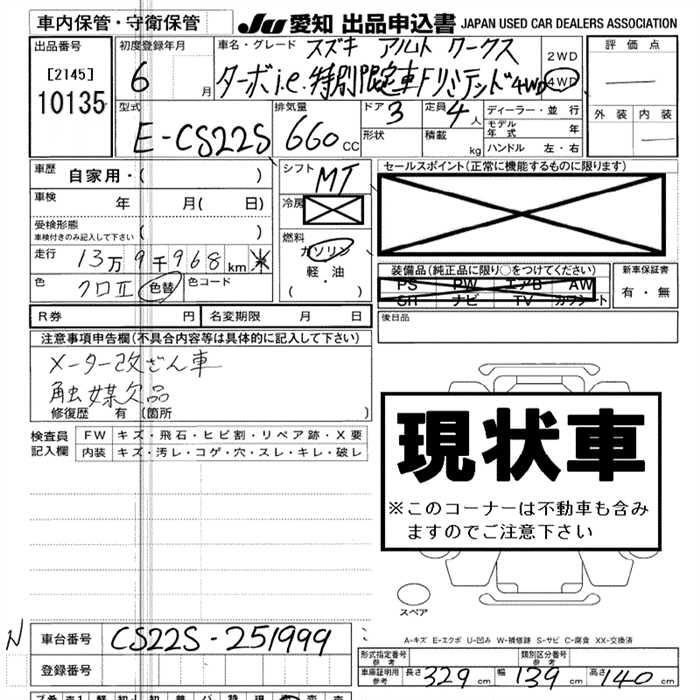 車内保管・守衛保管 JU 愛知 出品申込書 JAPAN USED CAR DEALERS ASSOCIATION
出品番号 初度登録年月 車名・グレード スズキ アルト ワークス 2WD 評価点
[2145] 6 月 ターボi.e.特別限定車Fリミテッド4WD 4WD
10135
型式 排気量 ドア 3 定員 4 人 ディーラー・並行 外装 内装
E-CS22S 660 cc 形状 積載 kg モデル年式 年
ハンドル 左・右
車歴 自家用・( ) シフト MT セールスポイント(正常に機能するものに限ります)
車検 年 月( 日) 冷房
受検形態
車検付きのみ記入して下さい 燃料
走行 13万9千968km ※ ガソリン
軽・油
( ・ )
装備品(純正品に限り○をつけてください) 新車保証書
PS PW エアB AW 有・無
SH ナビ TV カワシート
色 クロII 色替 色コード 後日品
R券 円 名変期限 月 日
注意事項申告欄(不具合内容等は具体的に記入して下さい)
メーター改ざん車
触媒欠品
修復歴 有 (箇所 )
検査員 FW キズ・飛石・ヒビ割・リペア跡・X要
記入欄 内装 キズ・汚レ・コゲ・穴・スレ・キレ・破レ
現状車
※このコーナーは不動車も含み
ますのでご注意下さい
スペア
A-キズ E-エクボ U-凹み W-補修跡 S-サビ C-腐食 XX-交換済
N 車台番号 CS22S-251999
登録番号
形式指定番号 参考 類別区分番号 参考
車庫証明用 参考 長さ 329 cm 幅 139 cm 高さ 140 cm